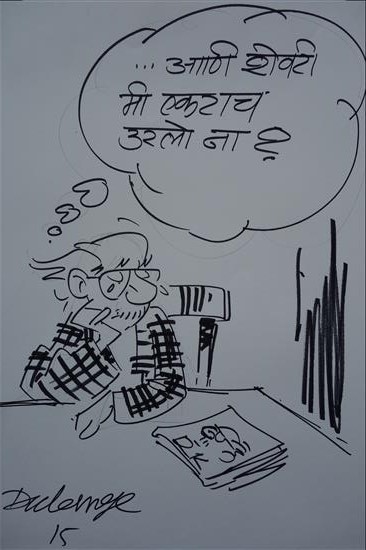 ... आणि शेवटी
मी एकटाच
उरलो ना ?
15